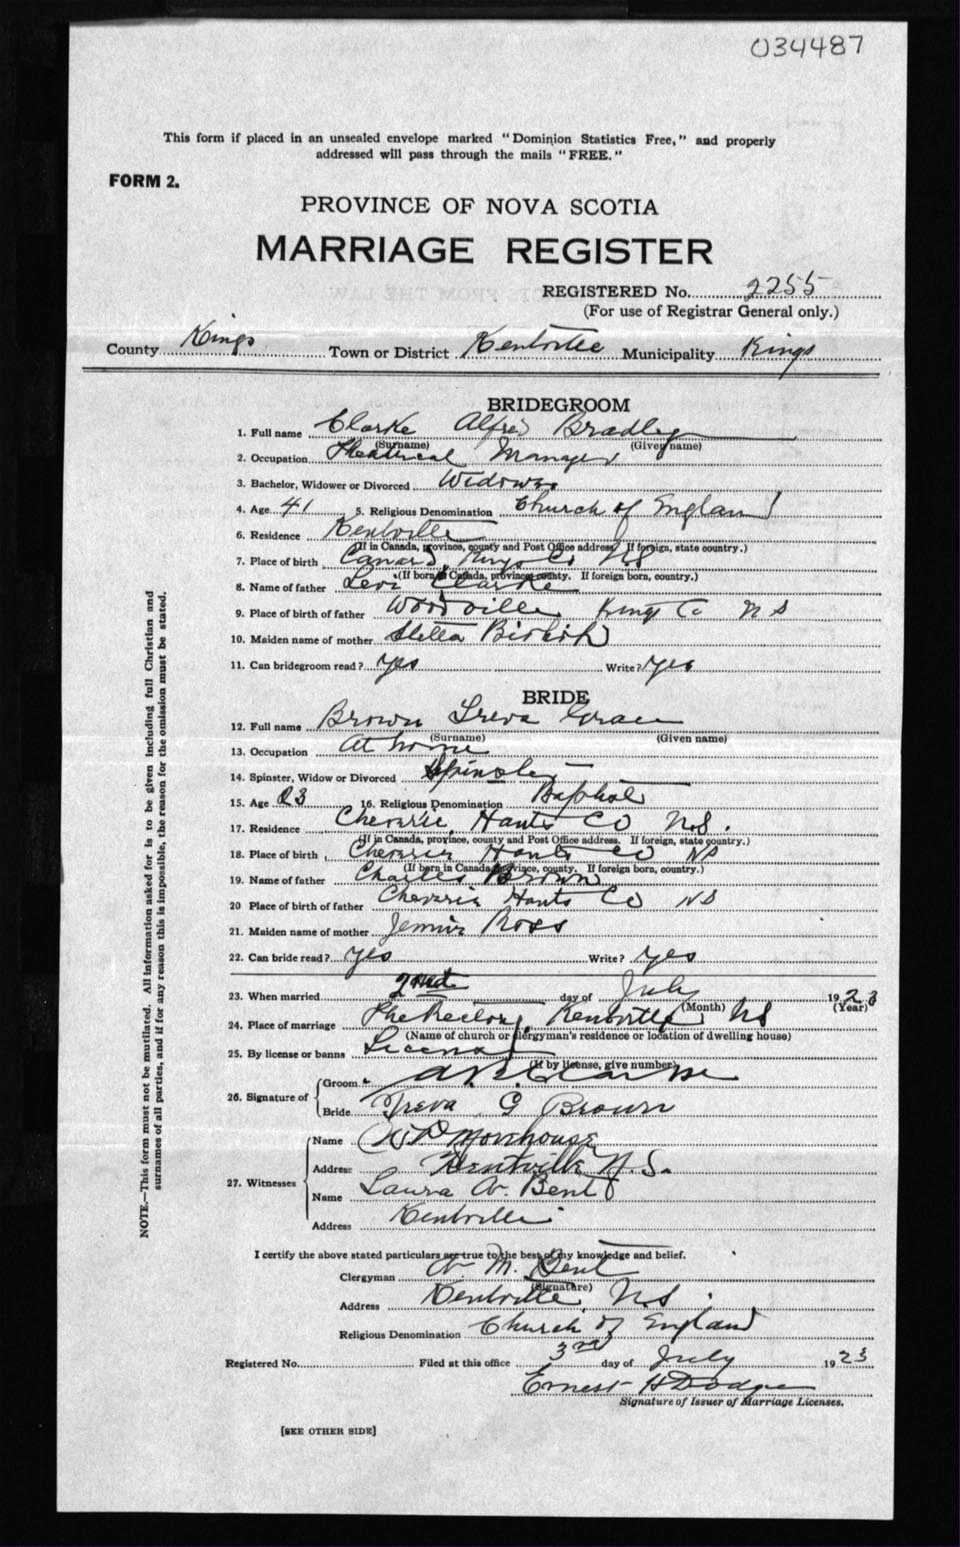 034487
This form if placed in an unsealed envelope marked "Dominion Statistics Free," and properly
addressed will pass through the mails "FREE."
FORM 2.
PROVINCE OF NOVA SCOTIA
MARRIAGE REGISTER
REGISTERED No. 2255
(For use of Registrar General only.)
County Kings Town or District Kentville Municipality Kings
BRIDEGROOM
1. Full name Clarke Alfred Bradley
(Surname) (Given name)
2. Occupation Theatrical Manager
3. Bachelor, Widower or Divorced Widower
4. Age 41 5. Religious Denomination Church of England
6. Residence Kentville
(If in Canada, province, county and Post Office address. If foreign, state country.)
7. Place of birth Canard, Kings Co NS
(If born in Canada, province, county. If foreign born, country.)
8. Name of father Levi Clarke
9. Place of birth of father Woodville Kings Co N S
10. Maiden name of mother Stella
11. Can bridegroom read? yes Write? yes
BRIDE
12. Full name Brown Treva Grace
(Surname) (Given name)
13. Occupation At home
14. Spinster, Widow or Divorced Spinster
15. Age 23 16. Religious Denomination Baptist
17. Residence Cheverie, Hants Co N.S.
(If in Canada, province, county and Post Office address. If foreign, state country.)
18. Place of birth Cheverie Hants Co NS
(If born in Canada, province, county. If foreign born, country.)
19. Name of father Charles Brown
20 Place of birth of father Cheverie Hants Co NS
21. Maiden name of mother Jennie Ross
22. Can bride read? yes Write? yes
23. When married 2nd day of July 1923
(Month) (Year)
24. Place of marriage The Rectory, Kentville NS
(Name of church or clergyman's residence or location of dwelling house)
25. By license or banns License
(If by license, give number)
26. Signature of Groom A B Clarke
Bride Treva G Brown
27. Witnesses Name Morehouse
Address Kentville N.S.
Name Laura A. Bent
Address Kentville
I certify the above stated particulars are true to the best of my knowledge and belief.
Clergyman A M. Bent
(Signature)
Address Kentville, N.S.
Religious Denomination Church of England
Registered No. Filed at this office 3rd day of July 1923
Ernest H Dodge
Signature of Issuer of Marriage Licenses.
[SEE OTHER SIDE]
NOTE.—This form must not be mutilated. All information asked for is to be given including full Christian and
surnames of all parties, and if for any reason this is impossible, the reason for the omission must be stated.